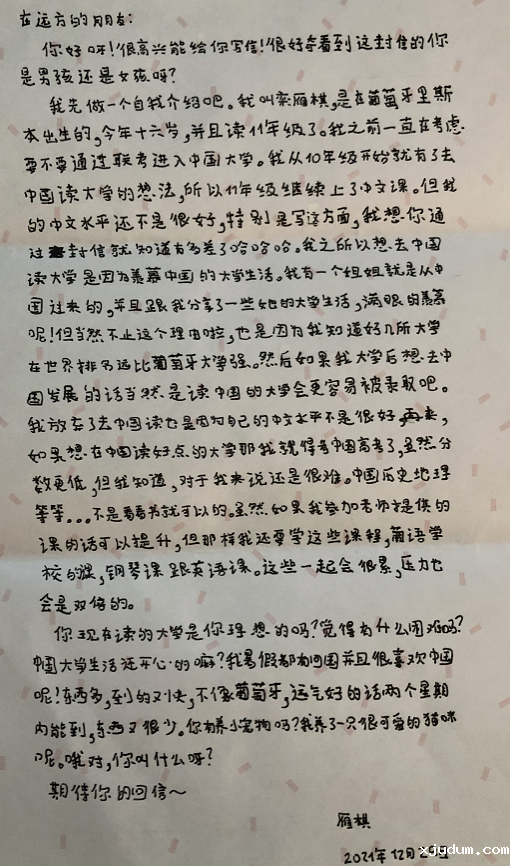 在远方的朋友:
你好呀!很高兴能给你写信!很好奇看到这封信的你
是男孩还是女孩呀?
我先做一个自我介绍吧。我叫栾雁棋,是在葡萄牙里斯
本出生的,今年十六岁,并且读11年级了。我之前一直在考虑
要不要通过联考进入中国大学。我从10年级开始就有了去
中国读大学的想法,所以11年级继续上了中文课。但我
的中文水平还不是很好,特别是写这方面,我想你通
过封信就知道有多差了哈哈哈。我之所以想去中国
读大学是因为羡慕中国的大学生活。我有一个姐姐就是从中
国过来的,并且跟我分享了一些她的大学生活,满眼的羡慕
呢!但当然不止这个理由啦,也是因为我知道好几所大学
在世界排名远比葡萄牙大学强。然后如果我大学后想去中
国发展的话当然是读中国的大学会更容易被录取吧。
我放弃了去中国读也是因为自己的中文水平不是很好,
如果想在中国读好点的大学那我就得考中国高考了,虽然分
数更低,但我知道,对于我来说还是很难。中国历史地理
等等...不是看看书就可以的。虽然如果我参加老师提供的
课的话可以提升,但那样我还要学这些课程,葡语学
校的课,钢琴课跟英语课。这些一起会很累,压力也
会是双倍的。
你现在读的大学是你理想的吗?觉得有什么困难吗?
中国大学生活还开心的嘛?我暑假都有回国并且很喜欢中国
呢!东西多,到的又快,不像葡萄牙,运气好的话两个星期
内能到,东西又很少。你有养小宠物吗?我养了一只很可爱的猫咪
呢。哦对,你叫什么呀?
期待你的回信~
雁棋
2021年12月
xjydum.com